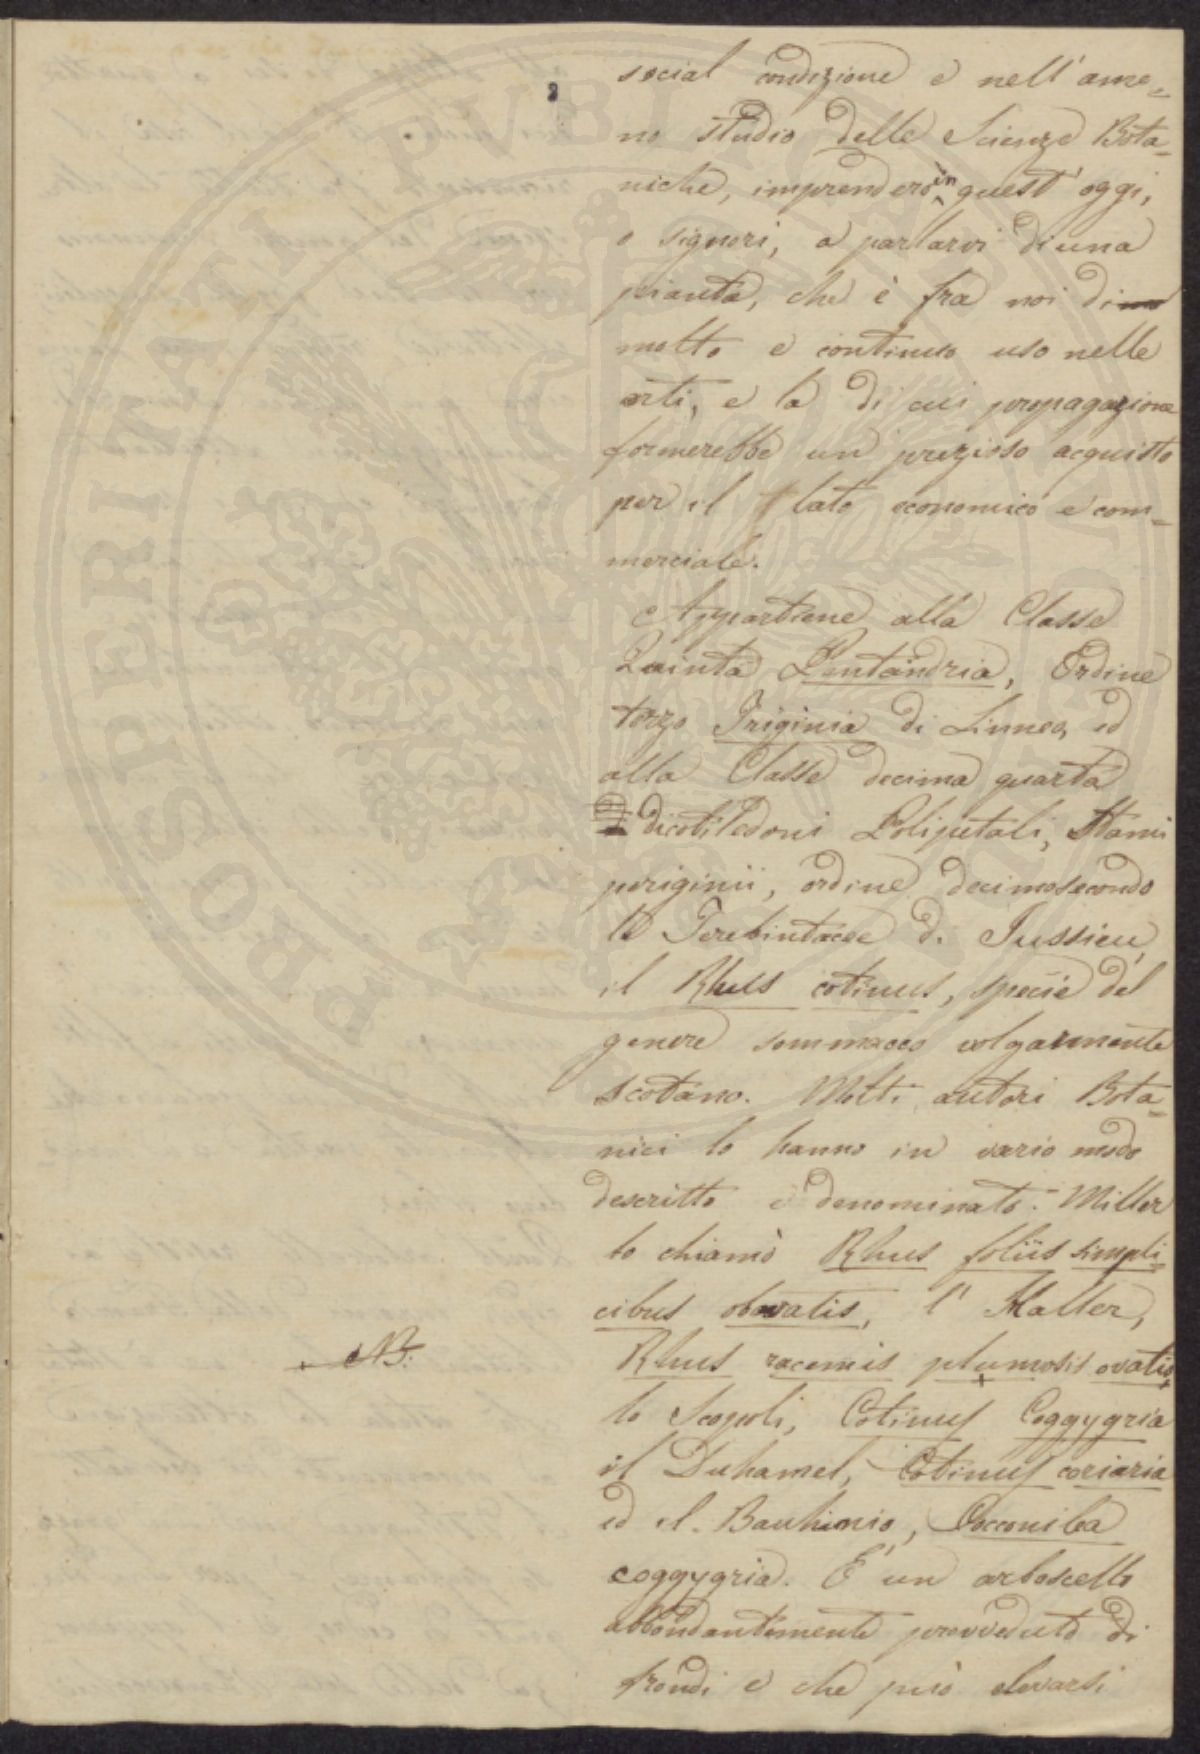 social condizione e nell'ame=
no studio delle Scienze Bota=
niche, imprenderò in quest'oggi,
o signori, a parlarvi di una
pianta, che è fra noi di
molto e continuo uso nelle
arti, e la di cui propagazione
formerebbe un prezioso acquisto
per il lato economico e com=
merciale.
Appartiene alla Classe
Quinta Pentandria, Ordine
terzo Triginia di Linneo, ed
alla Classe decima quarta
dicotiledoni Polipetali, Stami
periginii, ordine decimosecondo
le Terebintacee di Jussieu,
il Rhus cotinus, specie del
genere sommacco volgarmente
scotano. Molti autori Bota=
nici lo hanno in vario modo
descritto e denominato. Miller
lo chiamò Rhus foliis simpli=
cibus obovatis, l'Haller,
NB.
Rhus racemis plumosis ovatis,
lo Scopoli, Cotinus Coggygria
il Duhamel, Cotinus coriaria
ed il Bauhinio, Cocconilea
coggygria. E' un arboscello
abbondantemente provveduto di
frondi e che può elevarsi
PROSPERITATI PUBLICAE